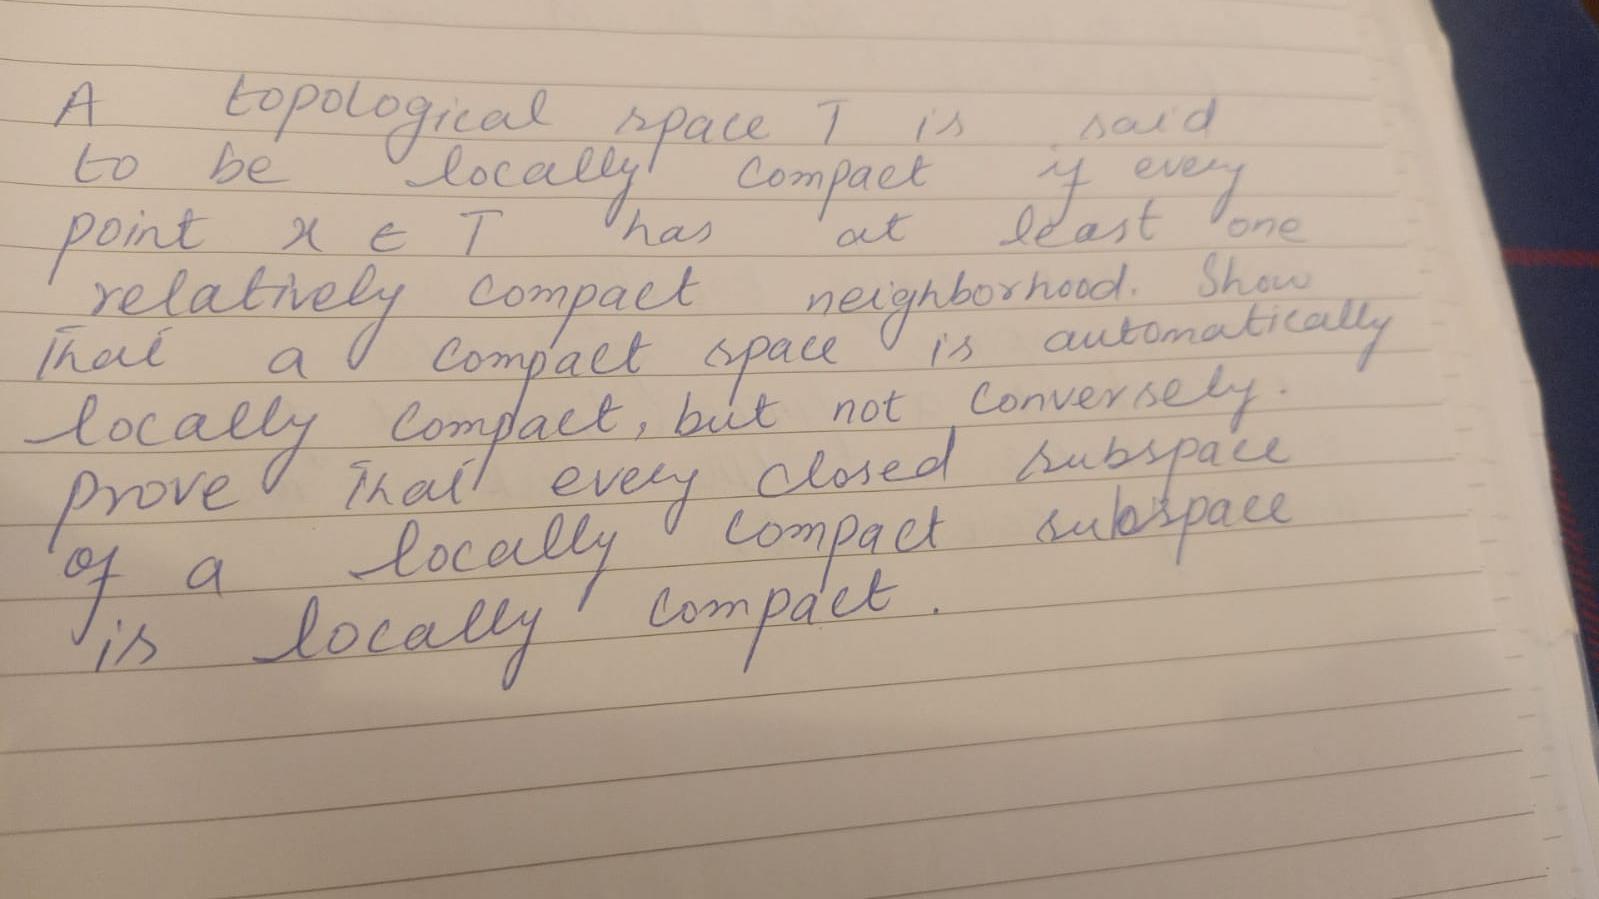 A topological space T is said
to be locally compact if every
point x ∈ T has at least one
relatively compact neighborhood. Show
That a compact space is automatically
locally compact, but not conversely.
prove That every closed subspace
of a locally compact subspace
is locally compact.